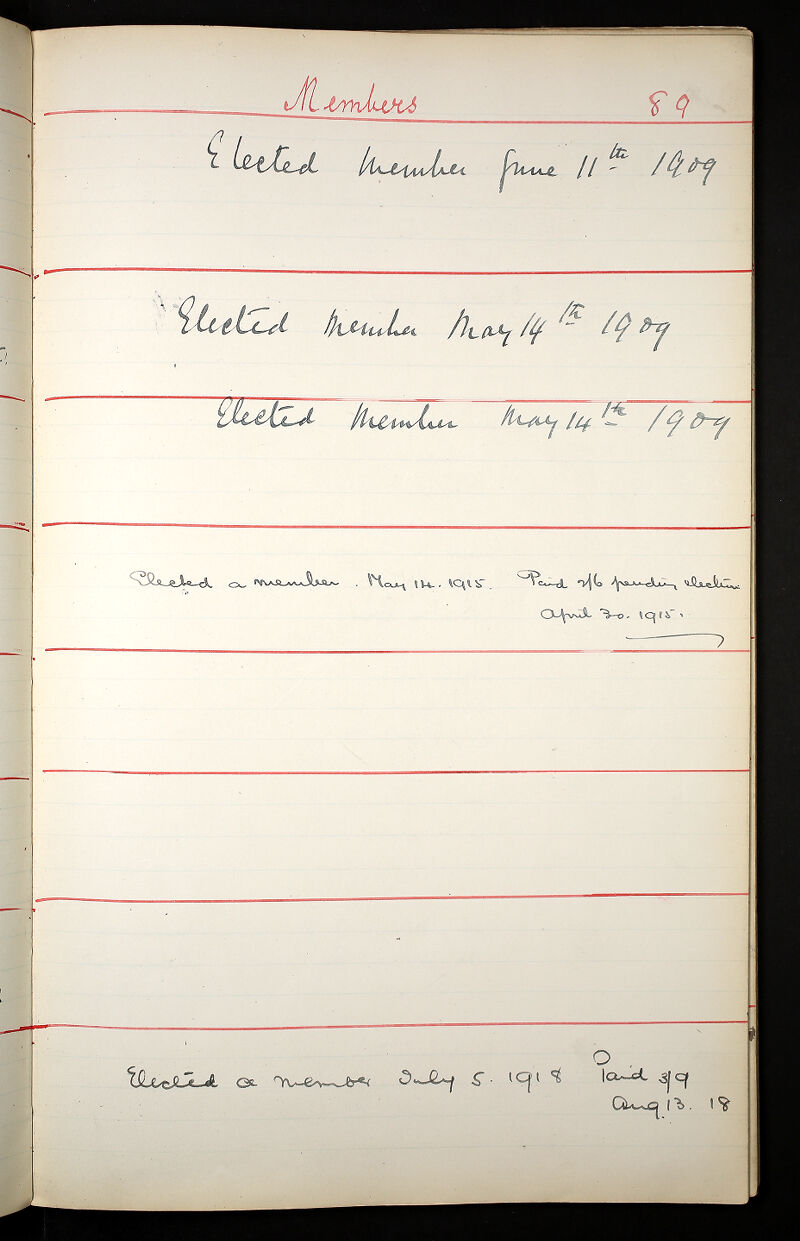 Members 89
Elected Member June 11th 1909
Elected Member May 14th 1909
Elected Member May 14th 1909
Elected a member. May 14. 1915. Paid 2/6 pending election
April 30. 1915.
Elected a member July 5. 1918 Paid 3/9
Aug 13. 18